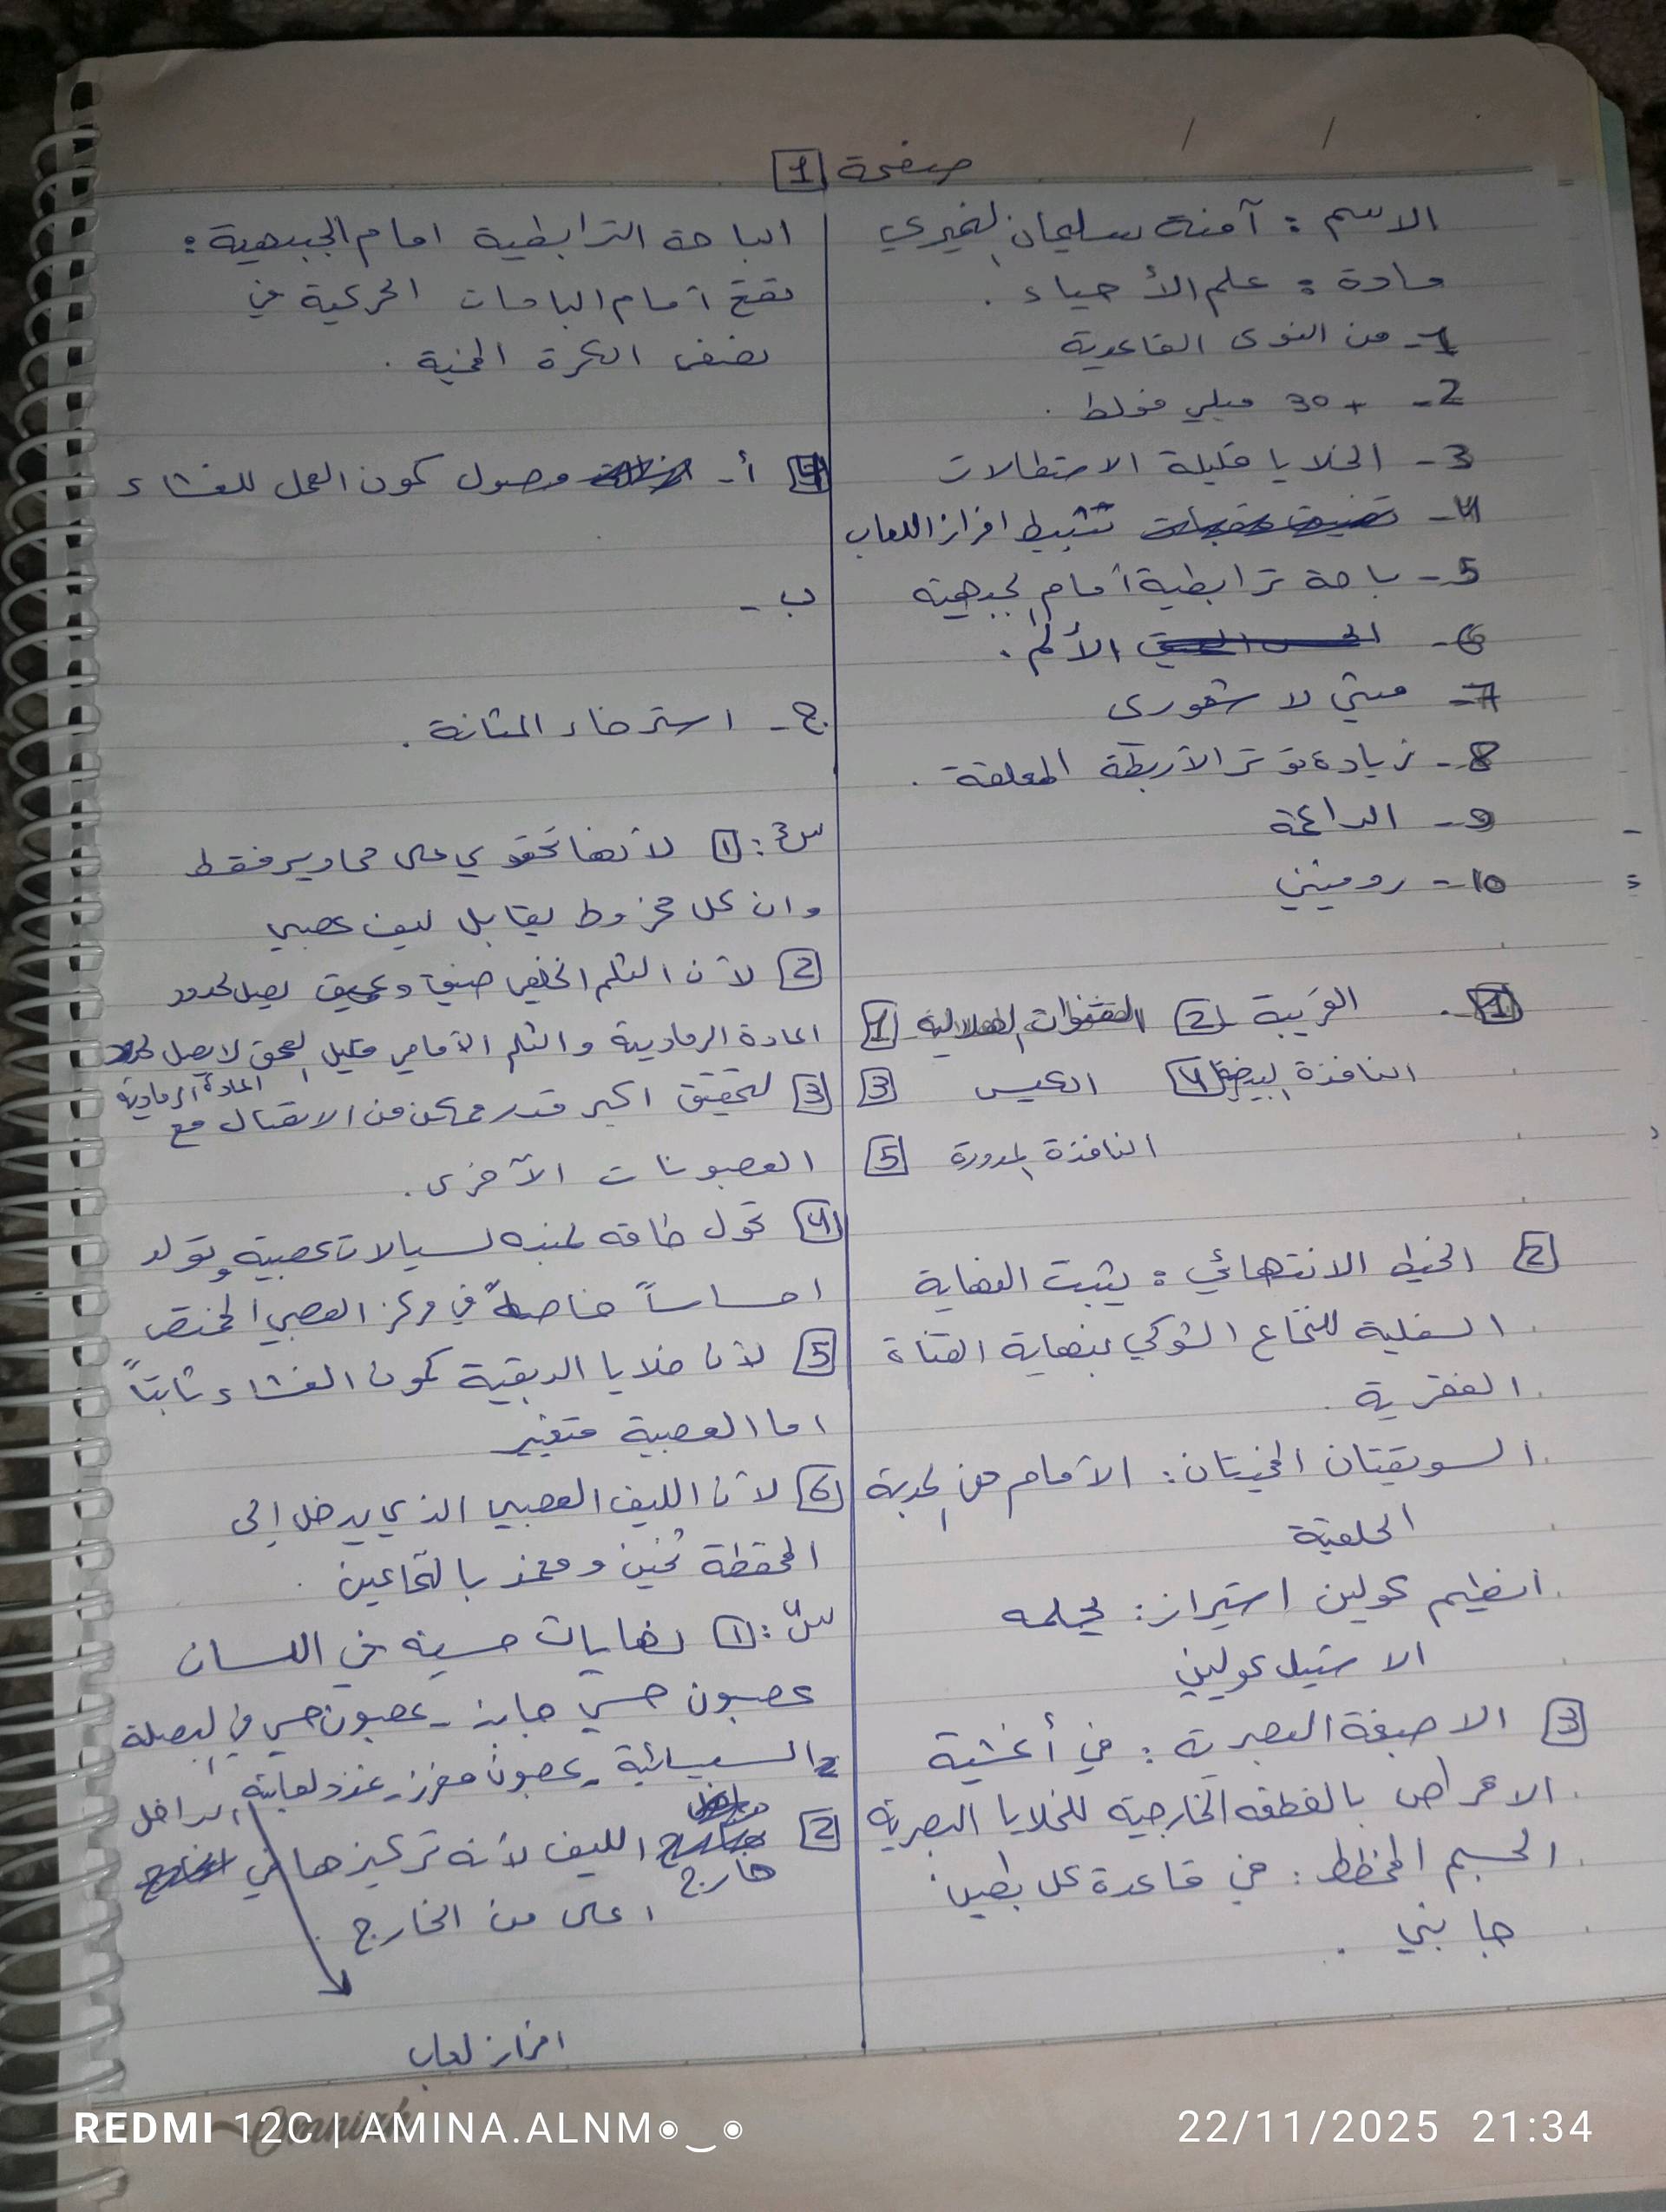 صفحة 1
الاسم : آمنة سليمان النميري
مادة : علم الأحياء .
1- من النوى القاعدية
2- +30 ميلي فولط .
3- الخلايا قليلة الاستطالات
4- تثبيط افراز اللعاب
5- باحة ترابطية أمام الجبهية
6- الألم .
7- مبني لا شعوري
8- زيادة توتر الأربطة المعلقة .
9- الداعمة
10- رودبسين
1 القنوات الهلالية 2 القريبة
3 الكيس 4 النافذة البيضية
5 النافذة المدورة
2 الخيط الانتهائي : يثبت النهاية
السفلية للنخاع الشوكي بنهاية القناة
الفقرية .
السويقتان المخيتان : الأمام من الحدبة
الحلقية
انظيم كولين استيراز : يحلمه
الاستيل كولين
3 الاصبغة البصرية : في أغشية
الاقراص بالقطعة الخارجية للخلايا البصرية
الجسم المخطط : في قاعدة كل بطين
جانبي .
الباحة الترابطية امام الجبهية :
تقع أمام الباحات الحركية في
نصف الكرة المخية .
4 أ- وصول كمون العمل للغشاء
ب -
ج- استرخاء المثانة .
س3 : 1 لأنها تحتوي على محاوير فقط
وان كل مخروط يقابل ليف عصبي
2 لأن الثلم الخلفي ضيق وعميق يصل لحدود
المادة الرمادية والثلم الأمامي قليل العمق لا يصل
المادة الرمادية
3 لتحقيق اكبر قدر ممكن من الاتصال مع
العصبونات الأخرى .
4 تحول طاقة المنبه لسيالات عصبية وتولد
احساساً خاصاً في مركز العصبي المختص
5 لأن خلايا الدبقية كمون الغشاء ثابتاً
اما العصبية متغير
6 لأن الليف العصبي الذي يدخل إلى
المحفظة ثخين ومغمد بالنخاعين .
س4 : 1 نهايات حسية في اللسان
عصبون حسي جابذ - عصبون حسي في البصلة
السيسائية - عصبون مفرز - غدد لعابية
افراز لعاب
2 خارج الليف لأنه تركيزها في الداخل
اعلى من الخارج
REDMI 12C | AMINA.ALNM◉‿◉
22/11/2025 21:34